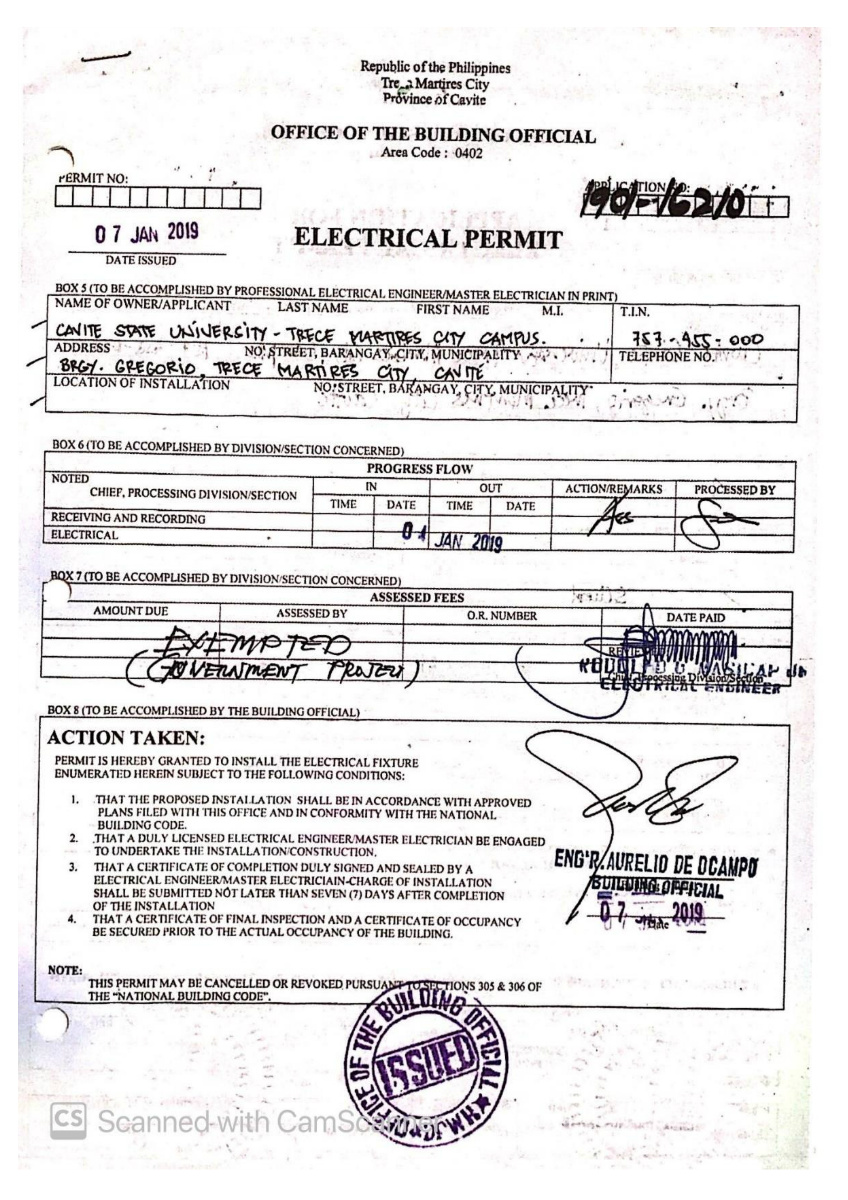 Republic of the Philippines
Tre Martires City
Province of Cavite
OFFICE OF THE BUILDING OFFICIAL
Area Code : 0402
PERMIT NO:
APPLICATION NO:
1901-16210
07 JAN 2019
DATE ISSUED
ELECTRICAL PERMIT
BOX 5 (TO BE ACCOMPLISHED BY PROFESSIONAL ELECTRICAL ENGINEER/MASTER ELECTRICIAN IN PRINT)
NAME OF OWNER/APPLICANT LAST NAME FIRST NAME M.I. T.I.N.
CAVITE STATE UNIVERSITY - TRECE MARTIRES CITY CAMPUS. 757-955-000
ADDRESS NO. STREET, BARANGAY, CITY, MUNICIPALITY TELEPHONE NO.
BRGY. GREGORIO, TRECE MARTIRES CITY CAVITE
LOCATION OF INSTALLATION NO. STREET, BARANGAY, CITY, MUNICIPALITY
BOX 6 (TO BE ACCOMPLISHED BY DIVISION/SECTION CONCERNED)
PROGRESS FLOW
NOTED
CHIEF, PROCESSING DIVISION/SECTION IN OUT ACTION/REMARKS PROCESSED BY
TIME DATE TIME DATE
RECEIVING AND RECORDING
ELECTRICAL 04 JAN 2019
BOX 7 (TO BE ACCOMPLISHED BY DIVISION/SECTION CONCERNED)
ASSESSED FEES
AMOUNT DUE ASSESSED BY O.R. NUMBER DATE PAID
EXEMPTED
(GOVERNMENT PROJECT)
Chief, Processing Division/Section
ELECTRICAL ENGINEER
BOX 8 (TO BE ACCOMPLISHED BY THE BUILDING OFFICIAL)
ACTION TAKEN:
PERMIT IS HEREBY GRANTED TO INSTALL THE ELECTRICAL FIXTURE
ENUMERATED HEREIN SUBJECT TO THE FOLLOWING CONDITIONS:
1. THAT THE PROPOSED INSTALLATION SHALL BE IN ACCORDANCE WITH APPROVED
PLANS FILED WITH THIS OFFICE AND IN CONFORMITY WITH THE NATIONAL
BUILDING CODE.
2. THAT A DULY LICENSED ELECTRICAL ENGINEER/MASTER ELECTRICIAN BE ENGAGED
TO UNDERTAKE THE INSTALLATION/CONSTRUCTION.
3. THAT A CERTIFICATE OF COMPLETION DULY SIGNED AND SEALED BY A
ELECTRICAL ENGINEER/MASTER ELECTRICIAIN-CHARGE OF INSTALLATION
SHALL BE SUBMITTED NOT LATER THAN SEVEN (7) DAYS AFTER COMPLETION
OF THE INSTALLATION
4. THAT A CERTIFICATE OF FINAL INSPECTION AND A CERTIFICATE OF OCCUPANCY
BE SECURED PRIOR TO THE ACTUAL OCCUPANCY OF THE BUILDING.
ENG'R. AURELIO DE OCAMPO
BUILDING OFFICIAL
07 2019
Date
NOTE:
THIS PERMIT MAY BE CANCELLED OR REVOKED PURSUANT TO SECTIONS 305 & 306 OF
THE "NATIONAL BUILDING CODE".
OFFICE OF THE BUILDING OFFICIAL
ISSUED
CS Scanned with CamScanner